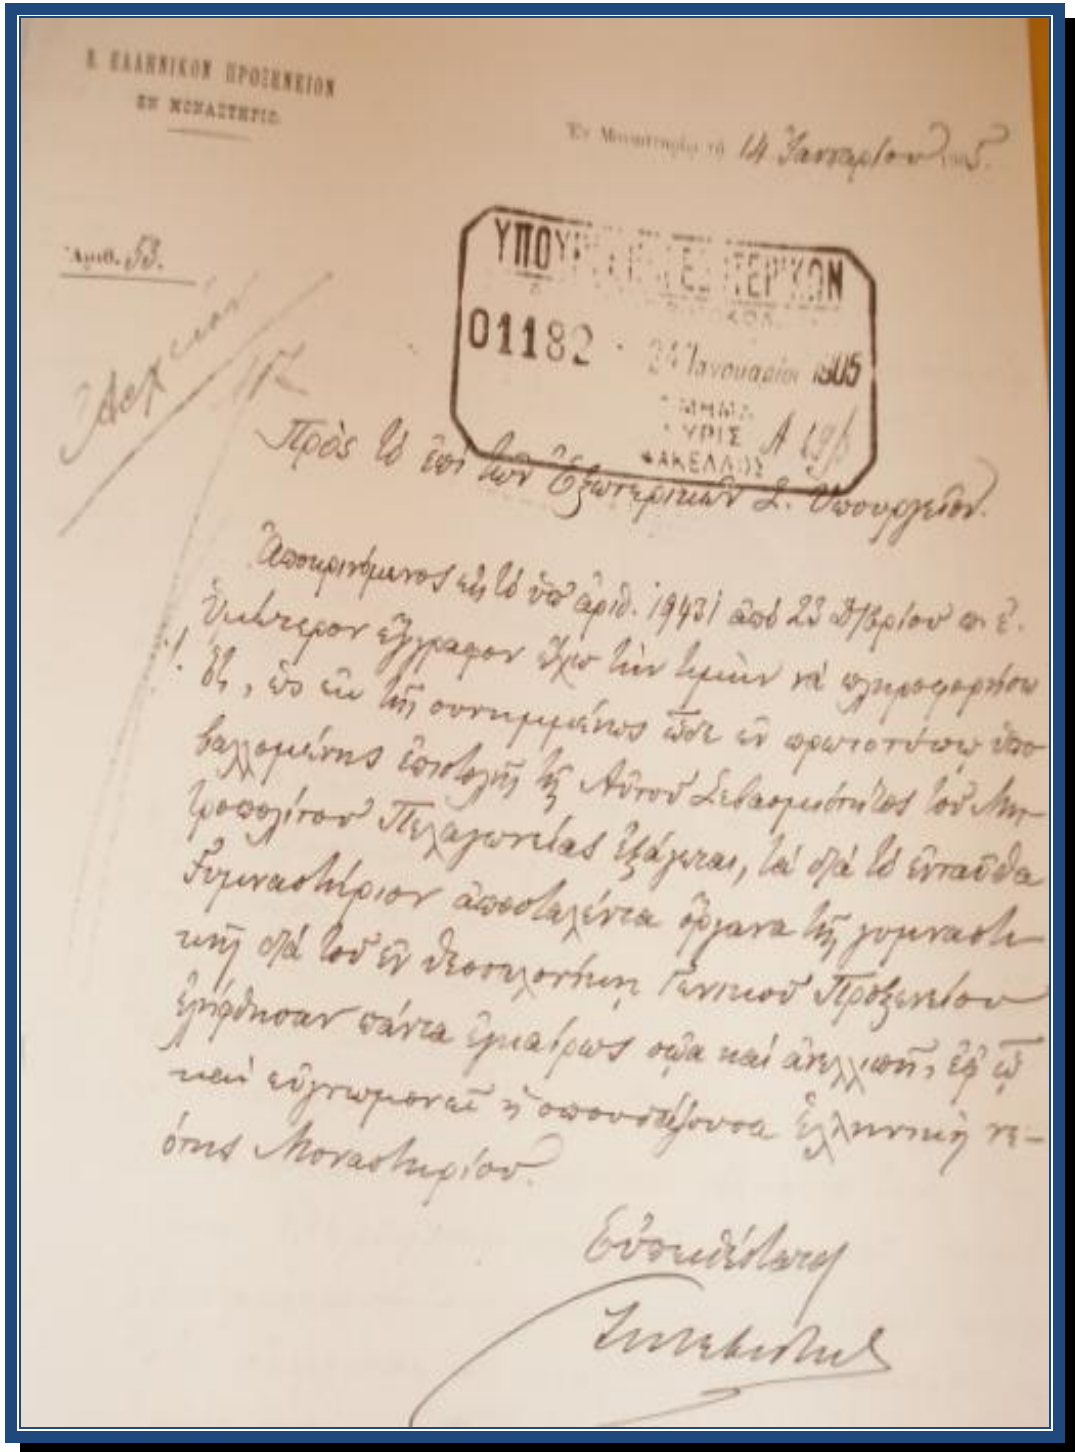 Β. ΕΛΛΗΝΙΚΟΝ ΠΡΟΞΕΝΕΙΟΝ
ΕΝ ΜΟΝΑΣΤΗΡΙΩ
Ἐν Μοναστηρίῳ τῇ 14 Ἰανουαρίου 1905.
Ἀριθ. 53.
ΥΠΟΥΡΓΕΙΟΝ ΕΞΩΤΕΡΙΚΩΝ
ΠΡΩΤΟΚΟΛ.
01182 24 Ἰανουαρίου 1905
ΤΜΗΜΑ
ΦΑΚΕΛΛΟΣ
Ἀρχεῖον
Πρὸς τὸ ἐπὶ τῶν Ἐξωτερικῶν Σ. Ὑπουργεῖον.
Ἀποκρινόμενος εἰς τὸ ὑπ' ἀριθ. 19431 ἀπὸ 23 Δ/βρίου π. ἔ.
Ὑμέτερον ἔγγραφον ἔχω τὴν τιμὴν νὰ πληροφορήσω
ὅτι, ὡς ἐκ τῆς συνημμένως ὧδε ἐν πρωτοτύπῳ ὑπο-
βαλλομένης ἐπιστολῆς τῆς Αὐτοῦ Σεβασμιότητος τοῦ Μη-
τροπολίτου Πελαγωνείας ἐξάγεται, τὰ διὰ τὸ ἐνταῦθα
Γυμναστήριον ἀποσταλέντα ὄργανα τῆς γυμναστι-
κῆς διὰ τοῦ ἐν Θεσσαλονίκῃ Γενικοῦ Προξενείου
ἐλήφθησαν πάντα ἐγκαίρως σῷα καὶ ἀνελλιπῆ, ἐφ' ᾧ
καὶ εὐγνωμονεῖ ἡ σπουδάζουσα ἑλληνικὴ νε-
ότης Μοναστηρίου.
Εὐπειθέστατος